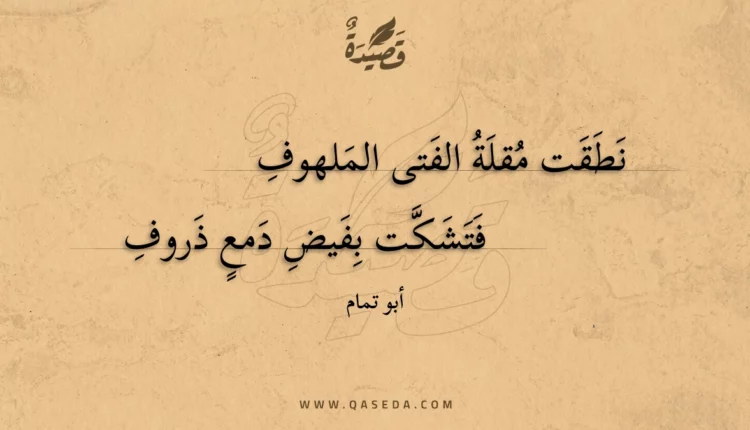 قَصِيدَةٌ
نَطَقَت مُقلَةُ الفَتى المَلهوفِ
فَتَشَكَّت بِفَيضِ دَمعٍ ذَروفِ
أبو تمام
WWW.QASEDA.COM